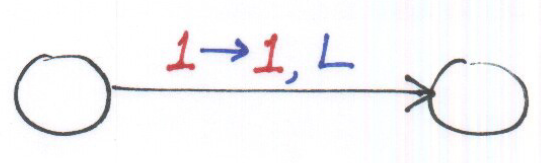 1→1, L